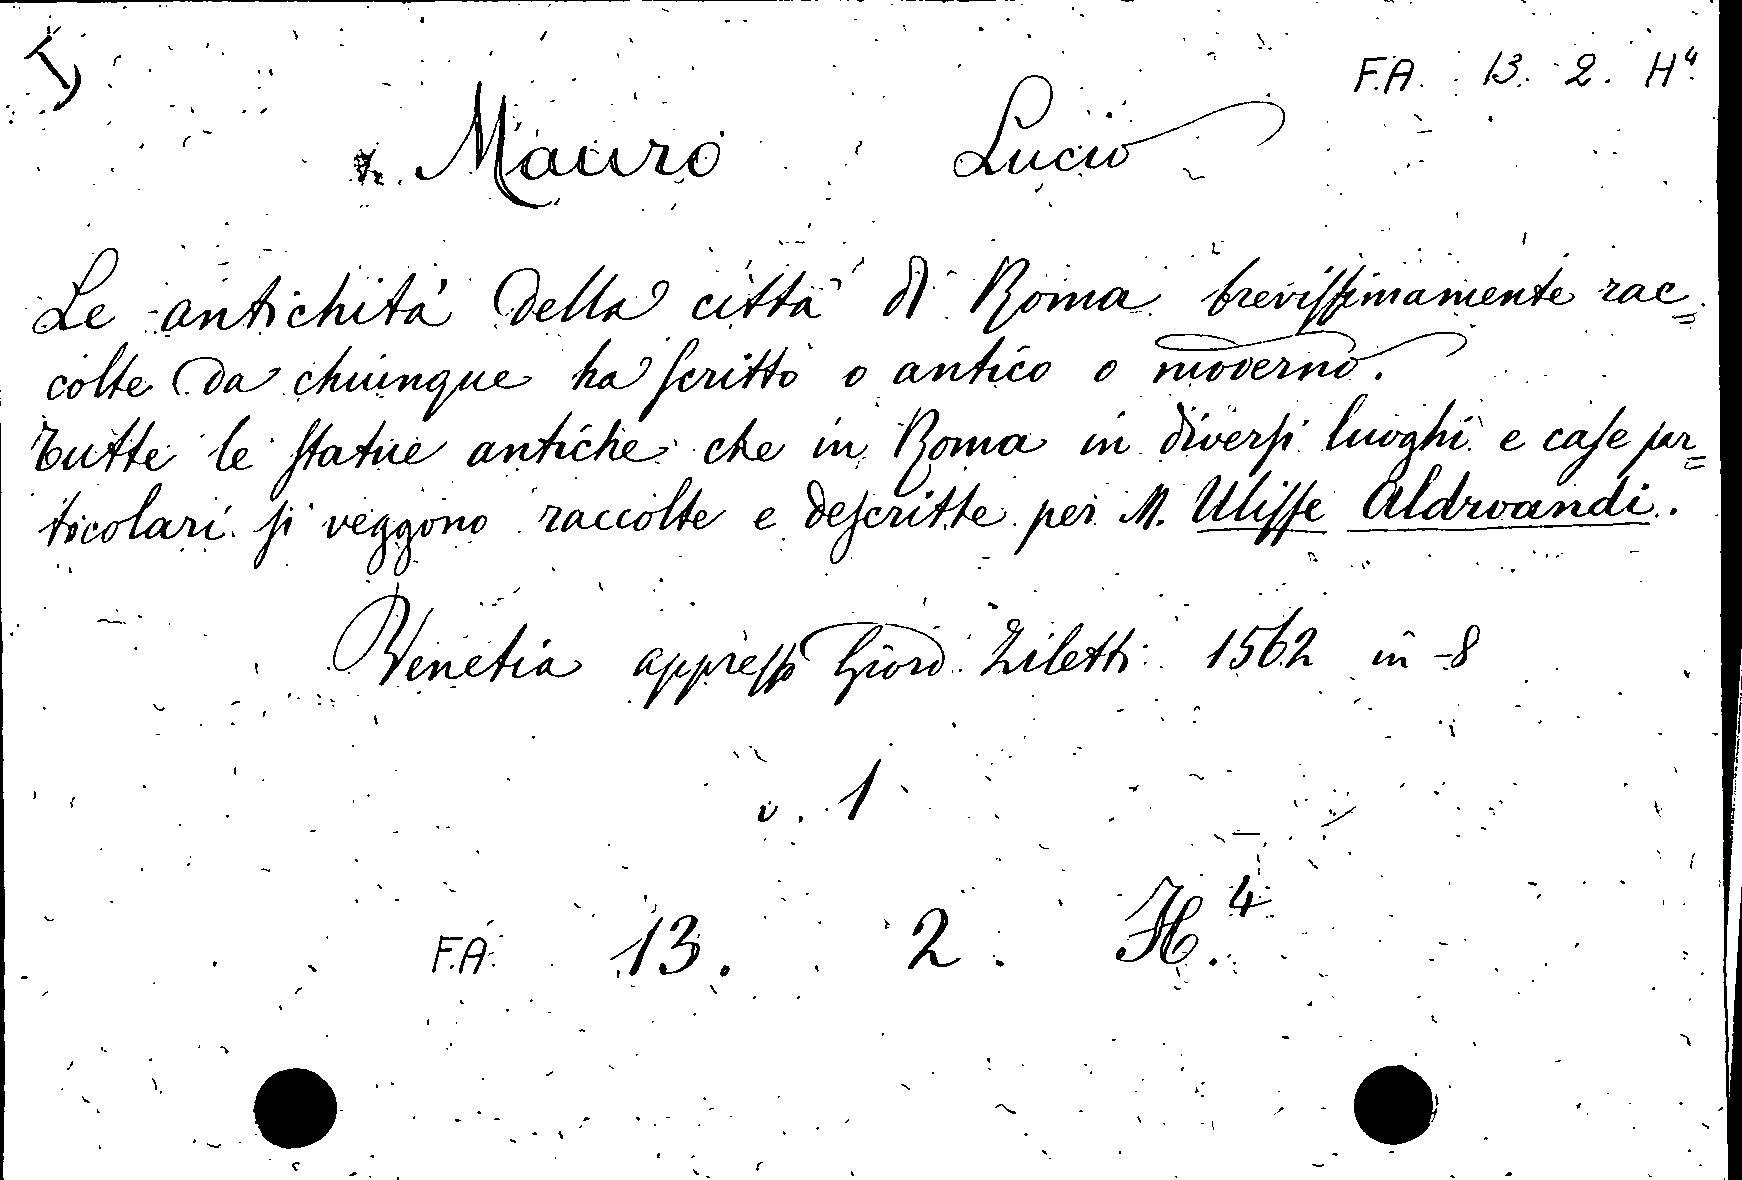 F.A. 13. 2. H⁴
Mauro Lucio
Le antichità della città di Roma brevissimamente rac=
colte da chiunque ha scritto o antico o moderno.
Tutte le statue antiche che in Roma in diversi luoghi e case par=
ticolari si veggono raccolte e descritte per M. Ulisse Aldroandi.
Venetia appresso Giord. Ziletti 1562 in-8
v. 1
F.A. 13. 2. H.⁴